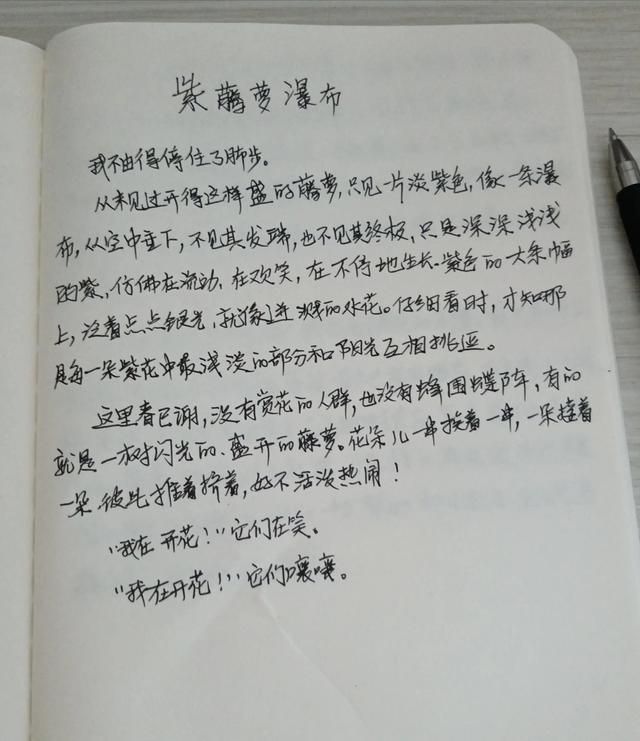 紫藤萝瀑布
我不由得停住了脚步。
从未见过开得这样盛的藤萝，只见一片淡紫色，像一条瀑
布，从空中垂下，不见其发端，也不见其终极，只是深深浅浅
的紫，仿佛在流动，在欢笑，在不停地生长。紫色的大条幅
上，泛着点点银光，就像迸溅的水花。仔细看时，才知那
是每一朵紫花中最浅淡的部分和阳光互相挑逗。
这里春已谢，没有赏花的人群，也没有蜂围蝶阵，有的
就是一树闪光的、盛开的藤萝。花朵儿一串挨着一串，一朵接着
一朵，彼此推着挤着，好不活泼热闹！
“我在开花！”它们在笑。
“我在开花！”它们嚷嚷。